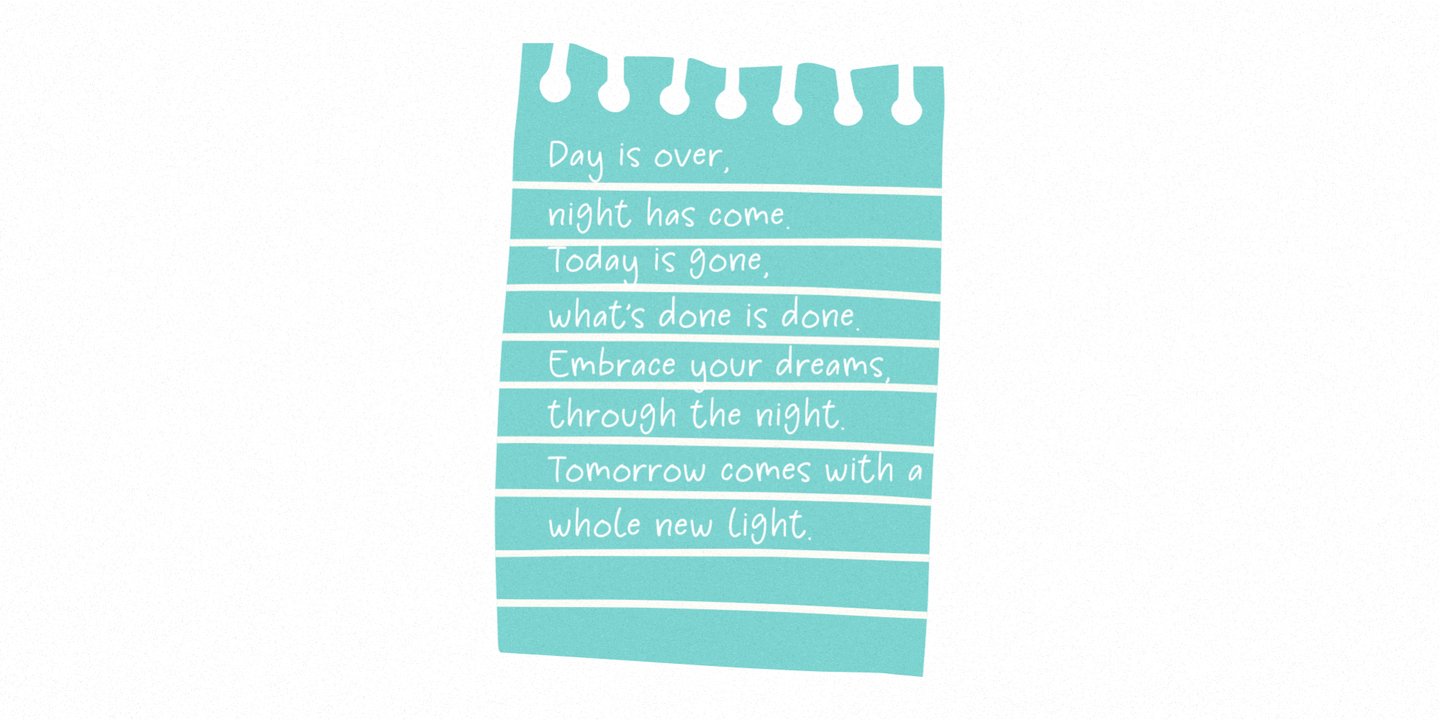 Day is over,
night has come.
Today is gone,
what's done is done.
Embrace your dreams,
through the night.
Tomorrow comes with a
whole new light.